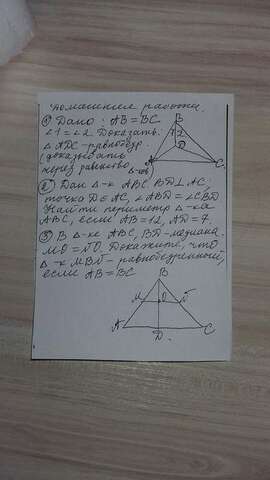 Домашняя работа.
① Дано: AB = BC
∠1 = ∠2. Доказать.
△ ADC - равнобедр.
(доказывать
через равенство
△-ов)
B
1 2
D
A C
② Дан △-к ABC. BD⊥AC,
точка D∈AC, ∠ABD = ∠CBD
Найти периметр △-ка
ABC, если AB = 12, AD = 7.
③ В △-ке ABC, BD-медиана
MO = NO. Докажите, что
△-к MBN - равнобедренный,
если AB = BC
B
M O N
A D. C